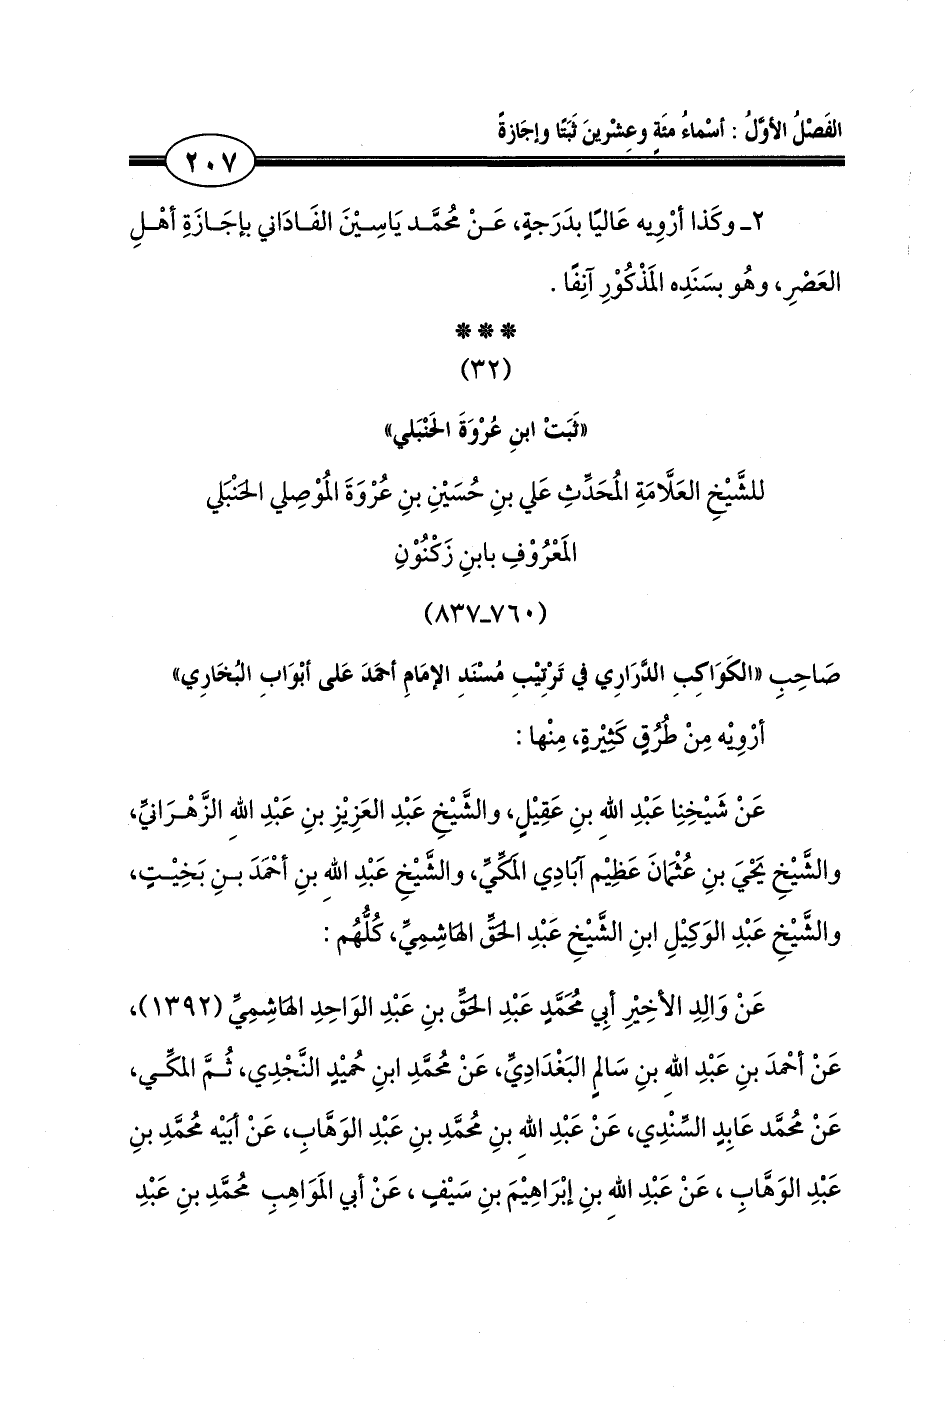 الفَصْلُ الأوَّلُ : أسْماءُ مئَةٍ وعِشْرينَ ثَبَتًا وإجَازةً
٢٠٧
٢ـ وكَذا أرْوِيه عَاليًا بدَرَجةٍ، عَـنْ مُحمَّـد يَاسِـيْنَ الفَـادَاني بـإجَـازَةِ أهْـلِ
العَصْرِ، وهُو بسَنَدِه المَذْكُوْرِ آنِفًا .
***
(٣٢)
«ثَبَتْ ابنِ عُرْوَةَ الحَنْبَلي»
للشَّيْخِ العَلَّامَةِ المُحَدِّثِ عَلي بنِ حُسَيْنِ بنِ عُرْوَةَ المُوْصِلي الحَنْبَلي
المَعْرُوْفِ بابنِ زَكْنُوْنِ
(٧٦٠ـ٨٣٧)
صَاحِبِ «الكَوَاكِبِ الدَّرَاري في تَرْتِيْبِ مُسْنَدِ الإمَامِ أحمَدَ عَلى أبْوَابِ البُخَاري»
أرْوِيْه مِنْ طُرُقٍ كَثِيْرةٍ، مِنْها :
عَنْ شَيْخِنا عَبْدِ اللهِ بنِ عَقِيْلٍ، والشَّيْخِ عَبْدِ العَزِيْزِ بنِ عَبْدِ اللهِ الزَّهْـرَانيِّ،
والشَّيْخِ يَحْيَ بنِ عُثْمَانَ عَظِيْم آبَادِي المَكِّيِّ، والشَّيْخِ عَبْدِ اللهِ بنِ أحْمَدَ بـنِ بَخِيْـتٍ،
والشَّيْخِ عَبْدِ الوَكِيْلِ ابنِ الشَّيْخِ عَبْدِ الحَقِّ الهَاشِمِيِّ، كُلُّهُم :
عَنْ وَالِدِ الأخِيْرِ أبي مُحَمَّدٍ عَبْدِ الحَقِّ بنِ عَبْدِ الوَاحِدِ الهَاشِمِيِّ (١٣٩٢)،
عَنْ أحْمَدَ بنِ عَبْدِ اللهِ بنِ سَالمٍ البَغْدَادِيِّ، عَنْ مُحمَّدِ ابنِ حُميْدٍ النَّجْدِي، ثُـمَّ المكِّـي،
عَنْ مُحمَّد عَابِدٍ السِّنْدِي، عَنْ عَبْدِ اللهِ بنِ مُحمَّدِ بنِ عَبْدِ الوَهَّابِ، عَنْ أبَيْه مُحمَّدِ بنِ
عَبْدِ الوَهَّابِ ، عَنْ عَبْدِ اللهِ بنِ إبْرَاهِيْمَ بنِ سَيْفٍ ، عَنْ أبي المَوَاهِبِ مُحمَّدِ بنِ عَبْدِ